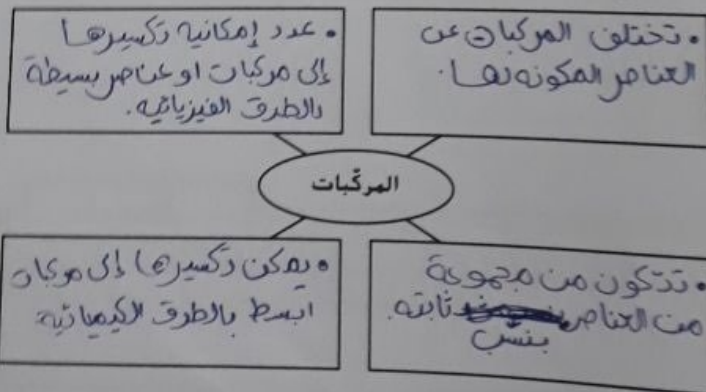 • تختلف المركبات عن
العناصر المكونه لها.
• عدد إمكانيه تكسيرها
إلى مركبات او عناصر بسيطة
بالطرق الفيزيائيه.
المركّبات
• تتكون من مجموعة
من العناصر ثابته.
بنسب
• يمكن تكسيرها إلى مركبات
ابسط بالطرق الكيميائية